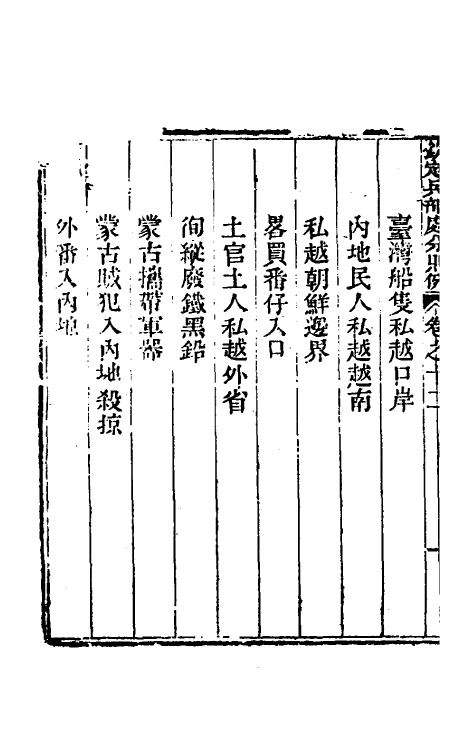 欽定兵部處分則例 卷之十二 一
臺灣船隻私越口岸
內地民人私越越南
私越朝鮮邊界
畧買番仔入口
土官土人私越外省
徇縱廢鐵黑鉛
蒙古攜帶軍器
蒙古賊犯入內地殺掠
外番入內地